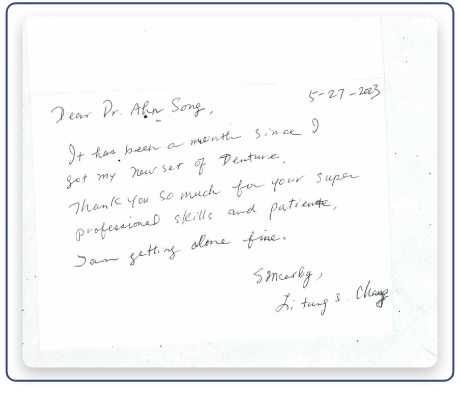 5-27-2023
Dear Dr. Ahn Song,
It has been a month since I
got my new set of Denture.
Thank you so much for your super
professional skills and patiente,
I am getting alone fine.
Sincerly,
Li tung S. Chang